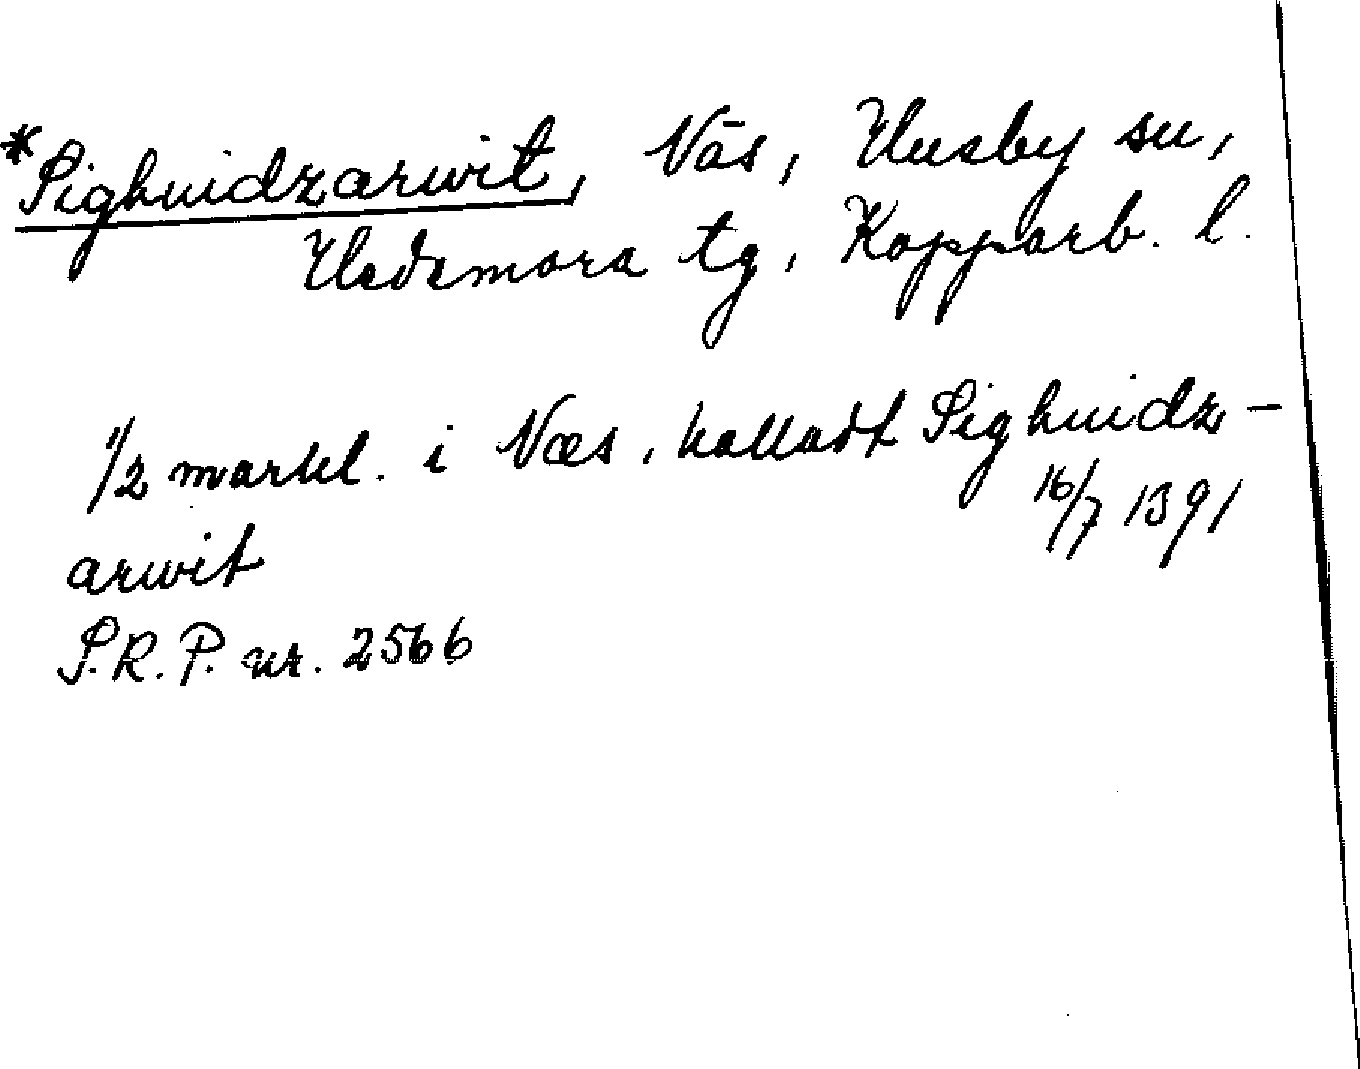 *Sighuidzarwit, Näs, Husby sn,
Hedemora tg, Kopparb. l.
1/2 markl. i Næs, kalladt Sighuidz-
16/7 1391
arwit
S.R.P. nr. 2566